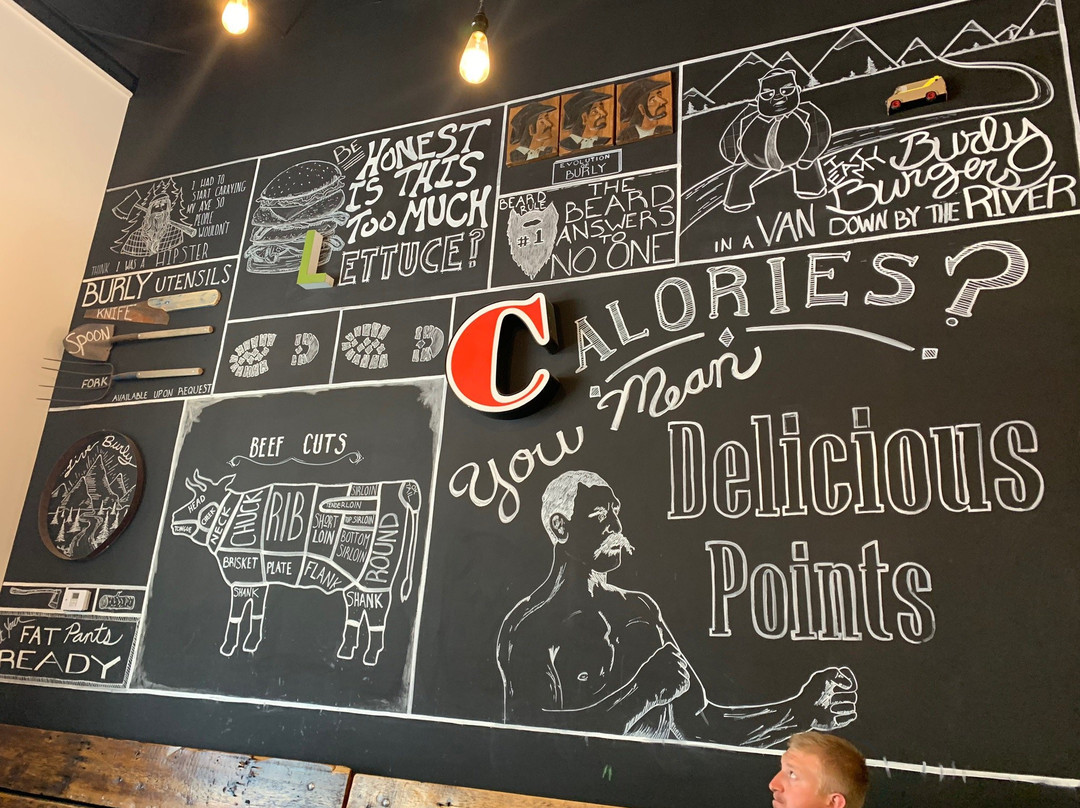 I HAD TO
START CARRYING
MY AXE SO
PEOPLE
WOULDN'T
THINK I WAS A HIPSTER
BE HONEST
IS THIS
TOO MUCH
LETTUCE?
EVOLUTION
BURLY
BEARD
RULE
#1
THE
BEARD
ANSWERS
TO
NO ONE
Burly
Burgers
IN A VAN DOWN BY THE RIVER
BURLY UTENSILS
KNIFE
SPOON
FORK
AVAILABLE UPON REQUEST
CALORIES?
You Mean
Delicious
Points
Live Burly
BEEF CUTS
HEAD
CHEEK
TONGUE
NECK
CHUCK
RIB
SHORT
LOIN
SIRLOIN
TENDERLOIN
TOP SIRLOIN
BOTTOM
SIRLOIN
ROUND
BRISKET
PLATE
FLANK
SHANK
SHANK
FAT Pants
READY